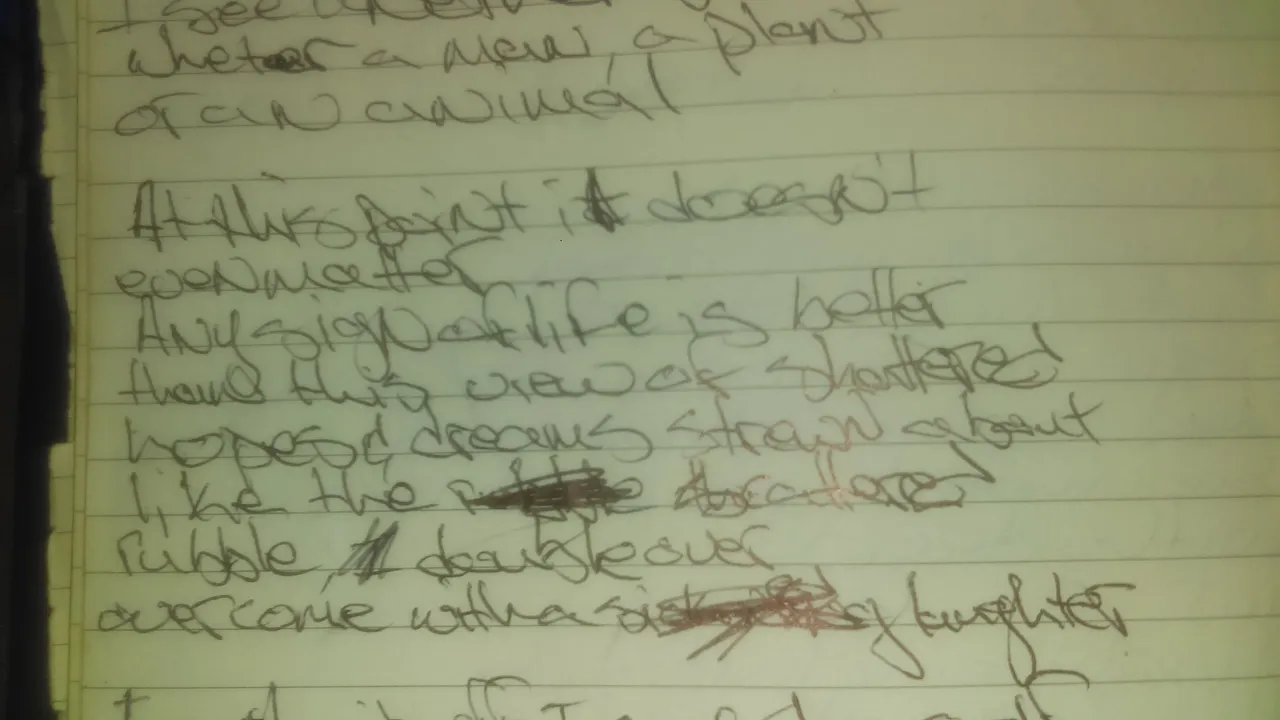 I see
wheter a man, a plant
or an animal
At this point it doesn't
even matter
Any sign of life is better
than this view of shattered
hopes & dreams strewn about
like the scattered
rubble, I double over
overcome with a laughter